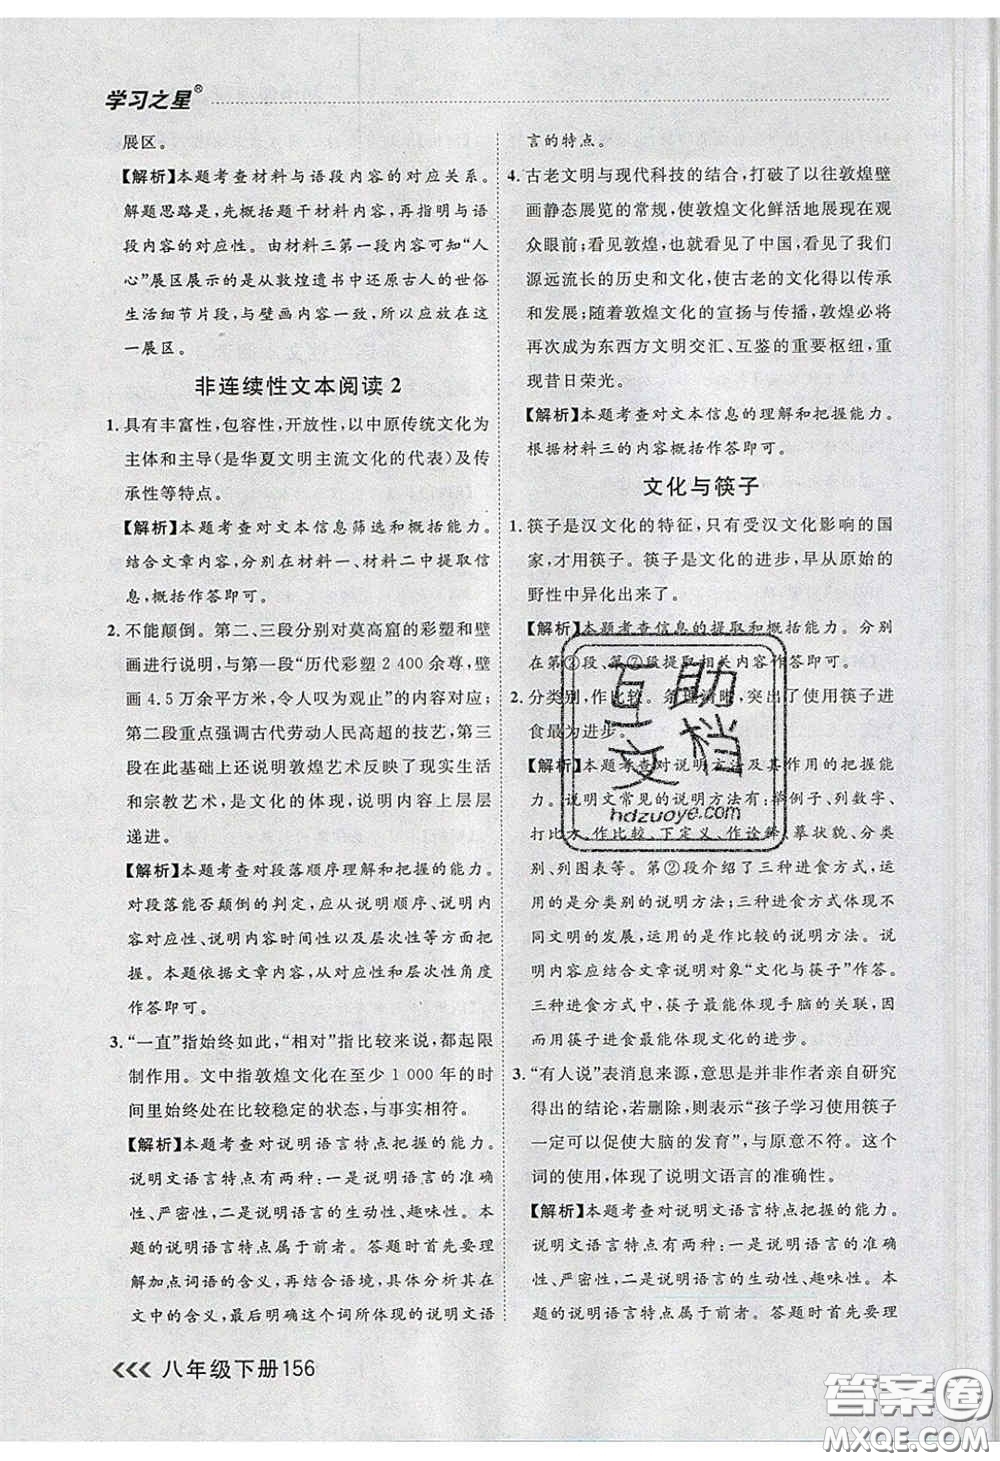 学习之星®
展区。
【解析】本题考查材料与语段内容的对应关系。
解题思路是，先概括题干材料内容，再指明与语
段内容的对应性。由材料三第一段内容可知“人
心”展区展示的是从敦煌遗书中还原古人的世俗
生活细节片段，与壁画内容一致，所以应放在这
一展区。
非连续性文本阅读 2
1. 具有丰富性，包容性，开放性，以中原传统文化为
主体和主导(是华夏文明主流文化的代表)及传
承性等特点。
【解析】本题考查对文本信息筛选和概括能力。
结合文章内容，分别在材料一、材料二中提取信
息，概括作答即可。
2. 不能颠倒。第二、三段分别对莫高窟的彩塑和壁
画进行说明，与第一段“历代彩塑 2 400 余尊，壁
画 4.5 万余平方米，令人叹为观止”的内容对应；
第二段重点强调古代劳动人民高超的技艺，第三
段在此基础上还说明敦煌艺术反映了现实生活
和宗教艺术，是文化的体现，说明内容上层层
递进。
【解析】本题考查对段落顺序理解和把握的能力。
对段落能否颠倒的判定，应从说明顺序、说明内
容对应性、说明内容时间性以及层次性等方面把
握。本题依据文章内容，从对应性和层次性角度
作答即可。
3. “一直”指始终如此，“相对”指比较来说，都起限
制作用。文中指敦煌文化在至少 1 000 年的时
间里始终处在比较稳定的状态，与事实相符。
【解析】本题考查对说明语言特点把握的能力。
说明文语言特点有两种：一是说明语言的准确
性、严密性，二是说明语言的生动性、趣味性。本
题的说明语言特点属于前者。答题时首先要理
解加点词语的含义，再结合语境，具体分析其在
文中的含义，最后明确这个词所体现的说明文语
言的特点。
4. 古老文明与现代科技的结合，打破了以往敦煌壁
画静态展览的常规，使敦煌文化鲜活地展现在观
众眼前；看见敦煌，就看见了中国，看见了我们
源远流长的历史和文化，使古老的文化得以传承
和发展；随着敦煌文化的宣扬与传播，敦煌必将
再次成为东西方文明交汇、互鉴的重要枢纽，重
现昔日荣光。
【解析】本题考查对文本信息的理解和把握能力。
根据材料三的内容概括作答即可。
文化与筷子
1. 筷子是汉文化的特征，只有受汉文化影响的国
家，才用筷子。筷子是文化的进步，早从原始的
野性中异化出来了。
【解析】本题考查信息的提取和概括能力。分别
在第②段、第⑦段提取相关内容作答即可。
2. 分类别，作比较。条理清晰，突出了使用筷子进
食最为进步。
【解析】本题考查说明方法及其作用的把握能
力。说明文常见的说明方法有：举例子、列数字、
打比方、作比较、下定义、作诠释、摹状貌、分类
别、列图表等。第②段介绍了三种进食方式，运
用的是分类别的说明方法；三种进食方式体现不
同文明的发展，运用的是作比较的说明方法。说
明内容应结合文章说明对象“文化与筷子”作答。
三种进食方式中，筷子最能体现手脑的关联，因
而使用筷子进食最能体现文化的进步。
3. “有人说”表消息来源，意思是并非作者亲自研究
得出的结论，若删除，则表示“孩子学习使用筷子
一定可以促使大脑的发育”，与原意不符。这个
词的使用，体现了说明文语言的准确性。
【解析】本题考查对说明文语言特点把握的能力。
说明文语言特点有两种：一是说明语言的准确
性、严密性，二是说明语言的生动性、趣味性。本
题的说明语言特点属于前者。答题时首先要理
八年级下册156
互助
文档
hdzuoye.com
答案圈
MXQE.COM